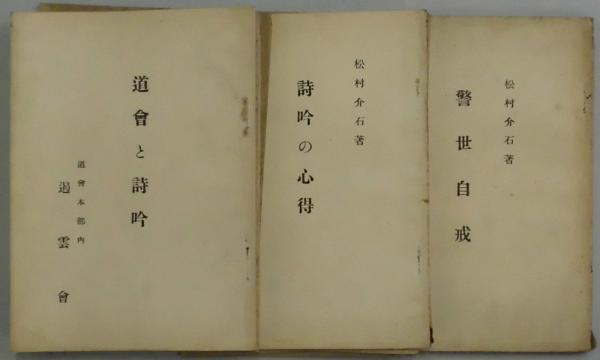 道會と詩吟
道會本部内
遏雲會
松村介石著
詩吟の心得
松村介石著
警世自戒